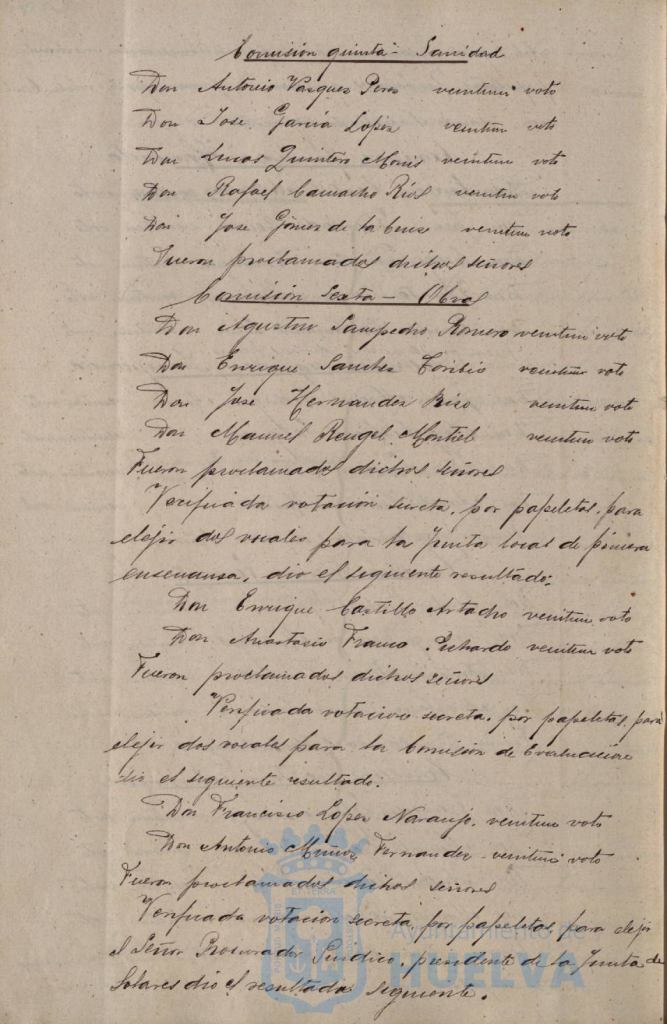 Comisión quinta - Sanidad
Don Antonio Vazquez Perez veintiun voto
Don Jose Garcia Lopez veintiun voto
Don Lucas Quintero Monis veintiun voto
Don Rafael Camacho Ríos veintiun voto
Don Jose Gómez de la Cruz veintiun voto
Fueron proclamados dichos señores
Comisión Sexta - Obras
Don Agustin Sampedro Romero veintiun voto
Don Enrique Sanchez Toribio veintiun voto
Don Jose Hernandez veintiun voto
Don Manuel Rengel Montiel veintiun voto
Fueron proclamados dichos señores
Verificada votación secreta, por papeletas, para
elejir dos vocales para la Junta local de primera
ensenanza, dio el seguiente resultado:
Don Enrique Castillo Artacho veintiun voto
Don Anastasio Franco veintiun voto
Fueron proclamados dichos señores
Verificada votacion secreta, por papeletas, para
elejir dos vocales para la Comisión de Evaluación
dio el seguiente resultado:
Don Francisco Lopez Naranjo, veintiun voto
Don Antonio Muñoz Fernandez - veintiun voto
Fueron proclamados dichos señores
Verificada votacion secreta, por papeletas, para elejir
el Señor Procurador Sindico, presidente de la Junta de
Solares dio el resultado seguiente.
Ayuntamiento de
HUELVA